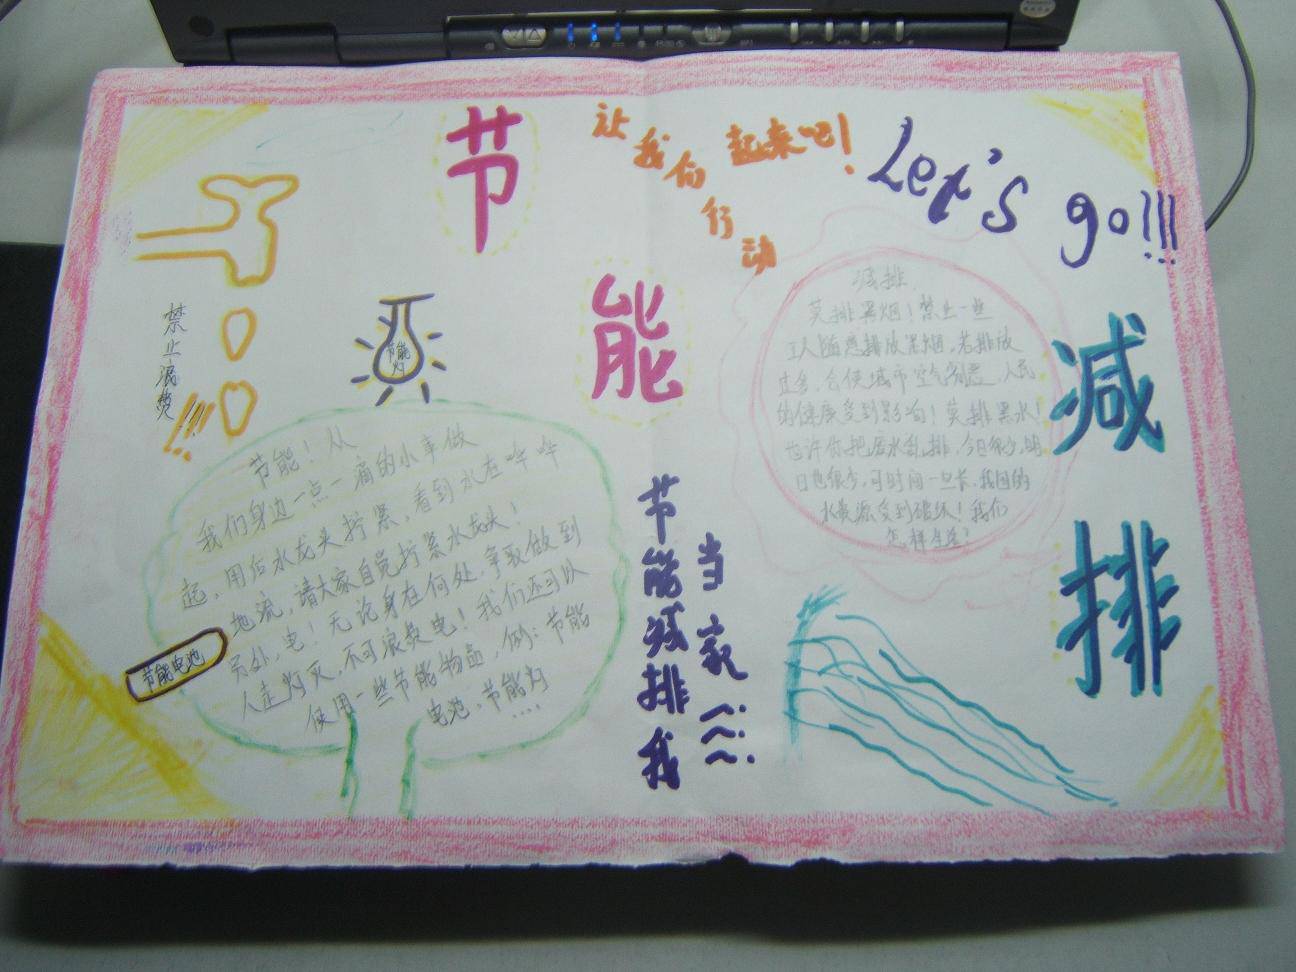 节
能
减
排
让我们行动
起来吧！
Let's go!!!
禁止浪费!!!
节能灯
节能！从
我们身边一点一滴的小事做
起，用后水龙头拧紧，看到水在哗哗
地流，请大家自觉拧紧水龙头！
另外，电！无论身在何处，争取做到
人走灯灭，不可浪费电！我们还可以
使用一些节能物品，例：节能
电池，节能灯
....
节能电池
节能减排我
当家
减排
莫排黑烟！禁止一些
工人随意排放黑烟，若排放
过多，会使城市空气 人民
的健康受到影响！莫排黑水！
也许你把废水乱排，今日很少，明
日也很少，可时间一旦长，我国的
水资源受到破坏！我们
怎样生活？